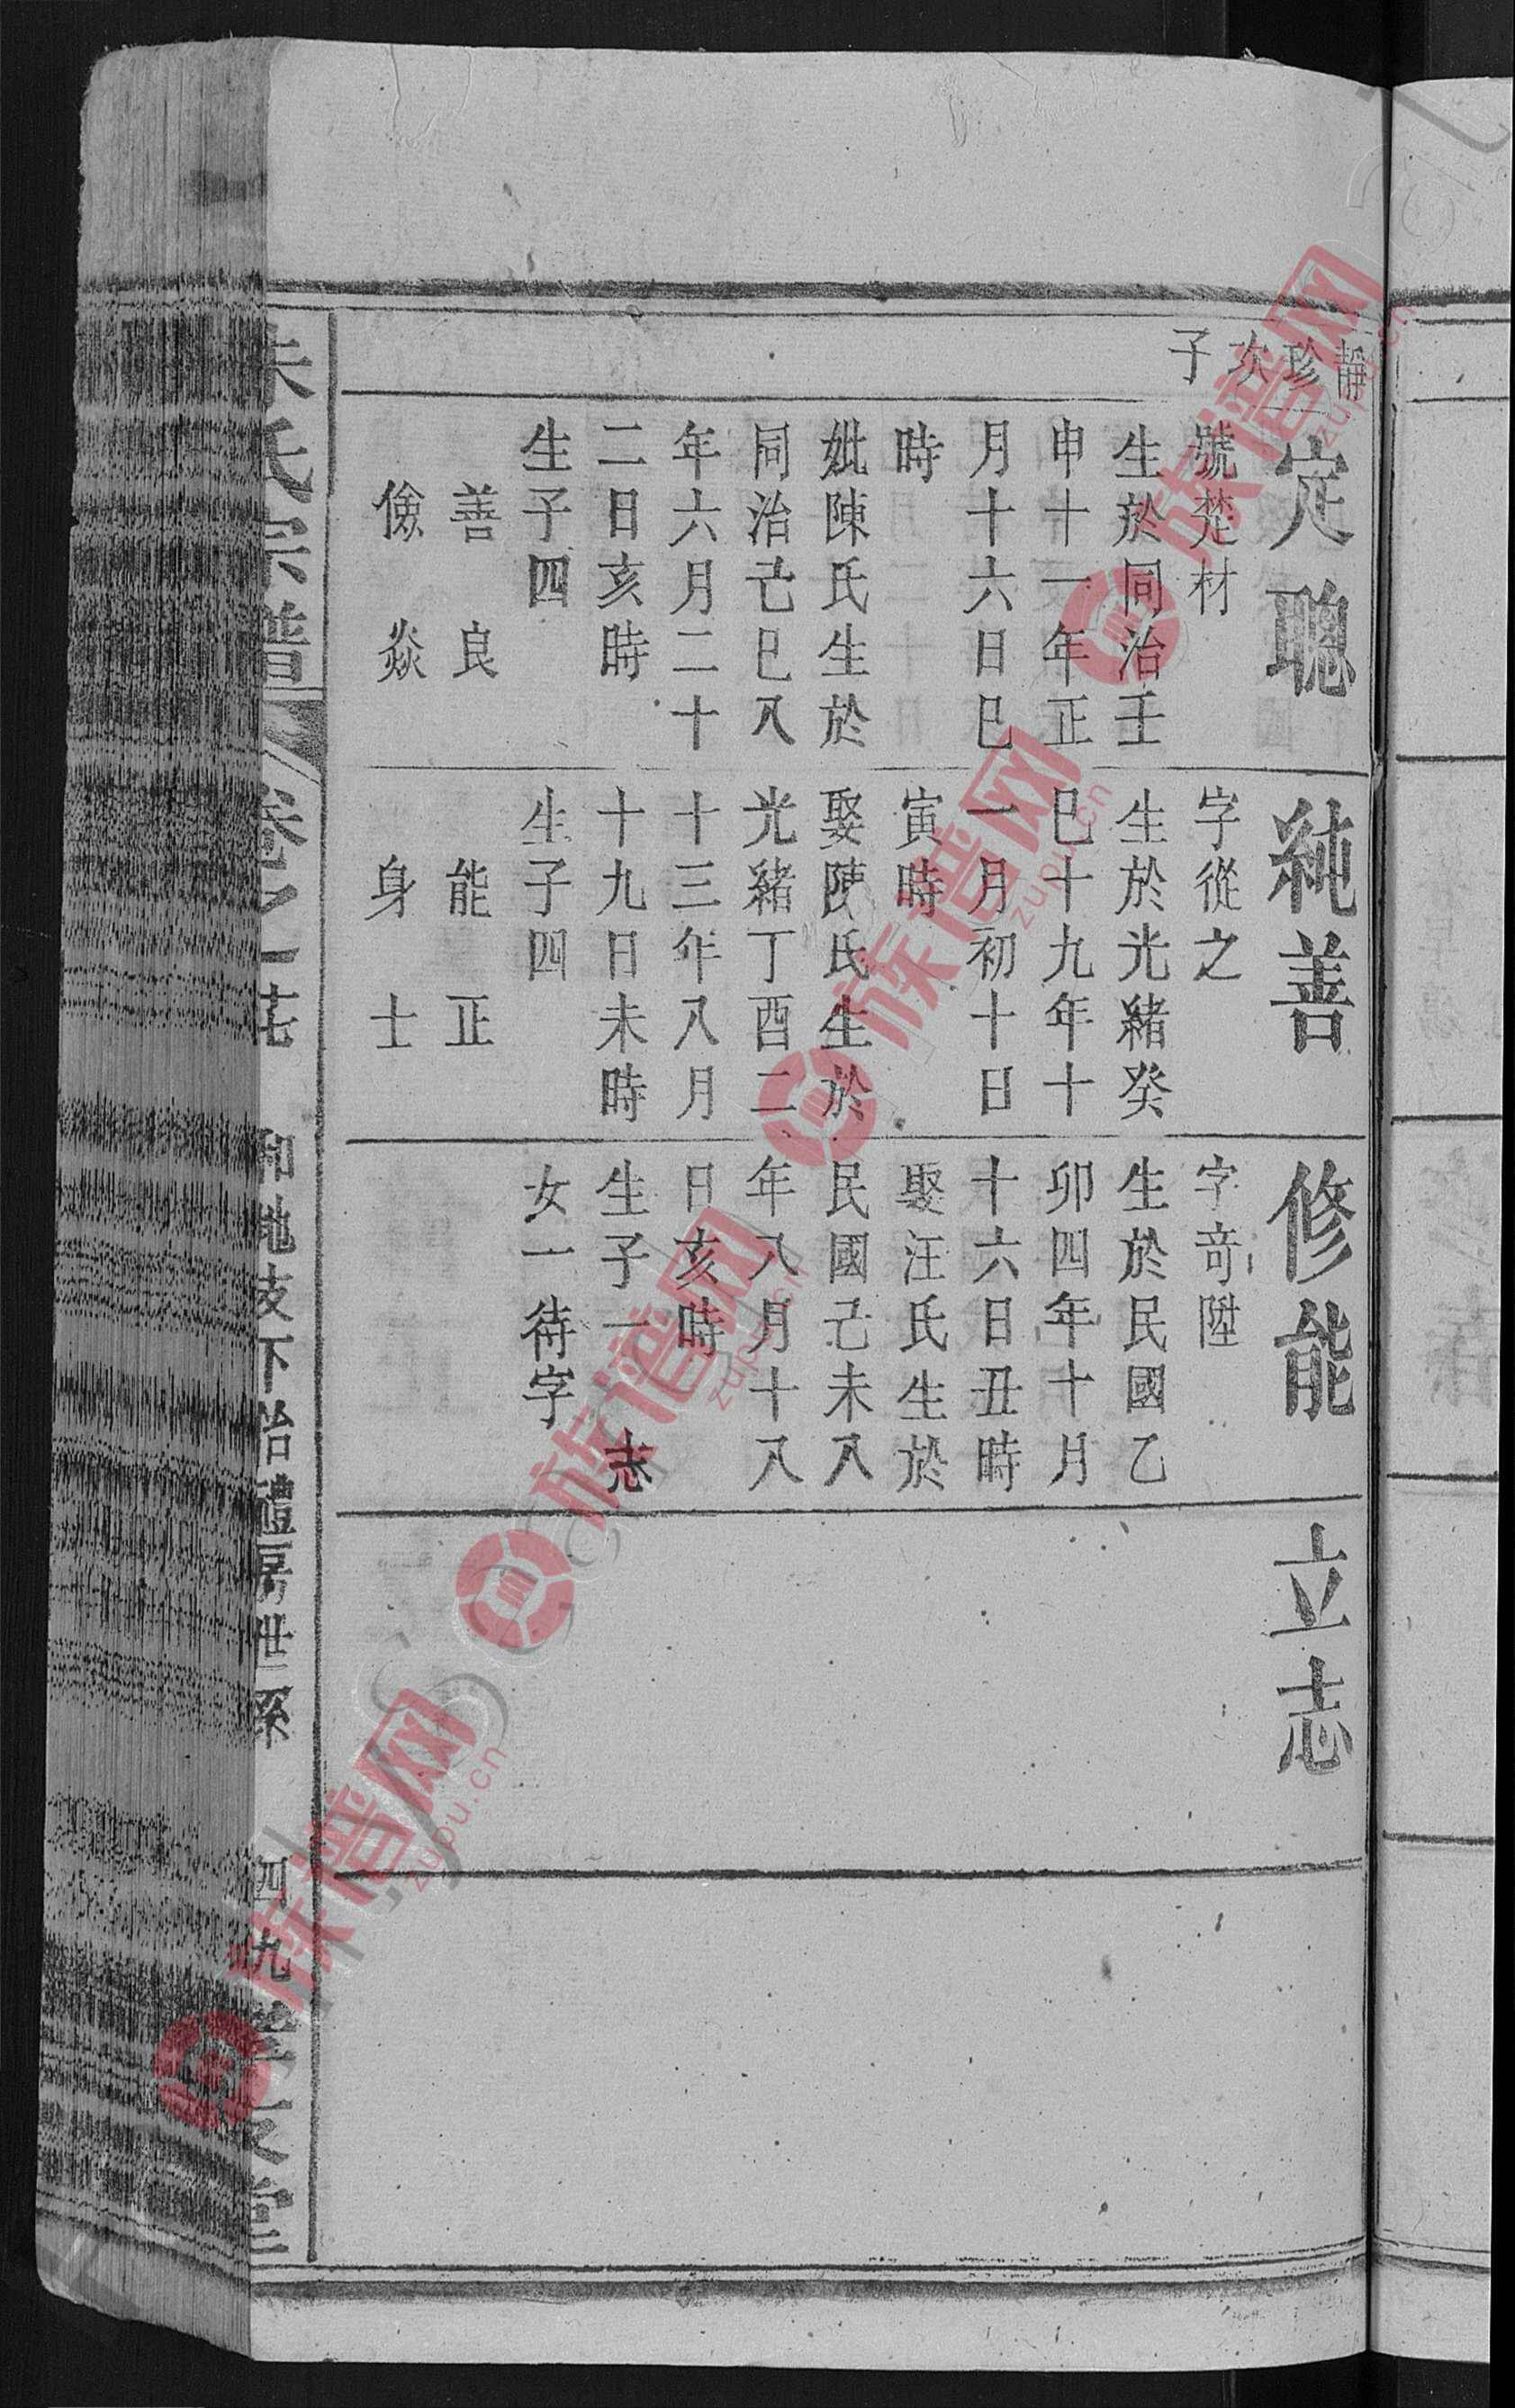 靜珍次子
定聰
號楚材
生於同治壬
申十一年正
月十六日巳
時
妣陳氏生於
同治己巳八
年六月二十
二日亥時
生子四
善 良
儉 焱
純善
字從之
生於光緒癸
巳十九年十
一月初十日
寅時
娶陳氏生於
光緒丁酉二
十三年八月
十九日未時
生子四
能 正
身 士
修能
字奇陞
生於民國乙
卯四年十月
十六日丑時
娶汪氏生於
民國己未八
年八月十八
日亥時
生子一 志
女一待字
立志
朱氏宗譜 卷之
支下治禮房世系
族谱网
zupu.cn
族谱网
zupu.cn
族谱网
zupu.cn
族谱网
zupu.cn